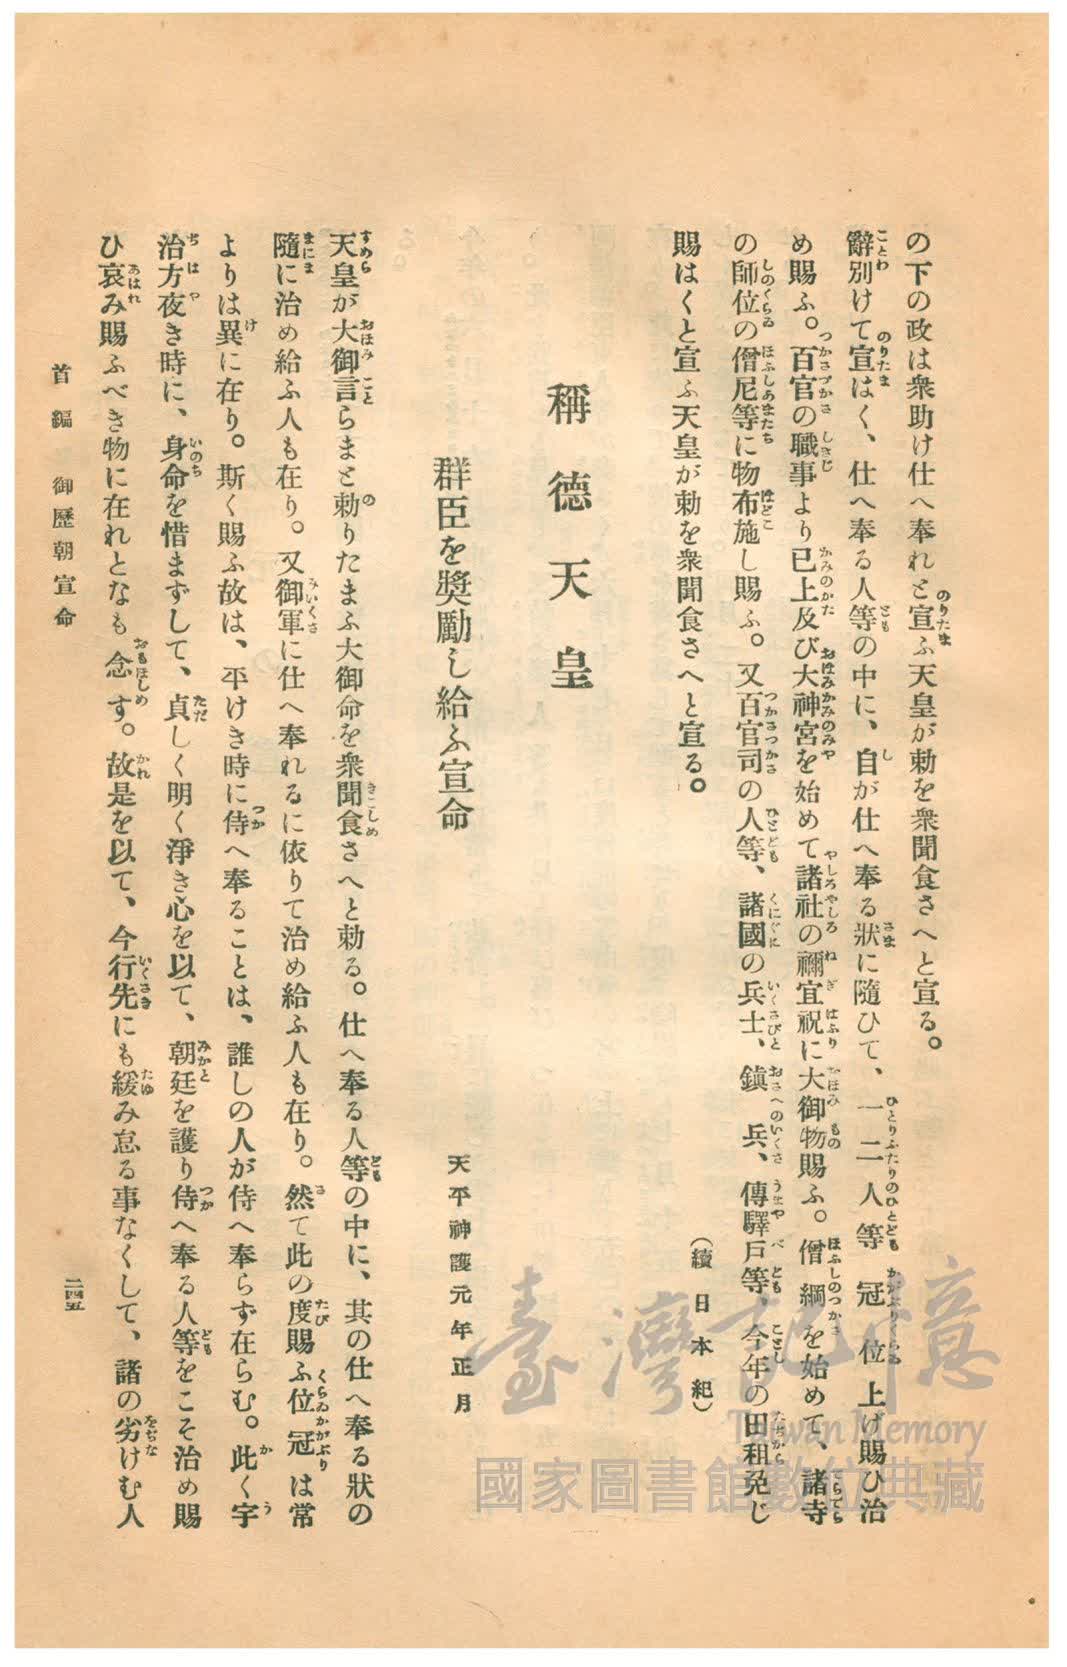 の下の政は衆助け仕へ奉れと宣ふ天皇が勅を衆聞食さへと宣る。
辭別けて宣はく、仕へ奉る人等の中に、自が仕へ奉る狀に隨ひて、一二人等冠位上げ賜ひ治
め賜ふ。百官の職事より已上及び大神宮を始めて諸社の禰宜祝に大御物賜ふ。僧綱を始めて、諸寺
の師位の僧尼等に物布施し賜ふ。又百官司の人等、諸國の兵士、鎭兵、傳驛戸等、今年の田租免じ
賜はくと宣ふ天皇が勅を衆聞食さへと宣る。
（續日本紀）
稱德天皇
群臣を奬勵し給ふ宣命
天平神護元年正月
天皇が大御言らまと勅りたまふ大御命を衆聞食さへと勅る。仕へ奉る人等の中に、其の仕へ奉る狀の
隨に治め給ふ人も在り。又御軍に仕へ奉れるに依りて治め給ふ人も在り。然て此の度賜ふ位冠は常
よりは異に在り。斯く賜ふ故は、平けき時に侍へ奉ることは、誰しの人が侍へ奉らず在らむ。此く宇
治方夜き時に、身命を惜まずして、貞しく明く淨き心を以て、朝廷を護り侍へ奉る人等をこそ治め賜
ひ哀み賜ふべき物に在れとなも念す。故是を以て、今行先にも緩み怠る事なくして、諸の劣けむ人
首編　御歷朝宣命
二四五
臺灣記憶
Taiwan Memory
國家圖書館數位典藏